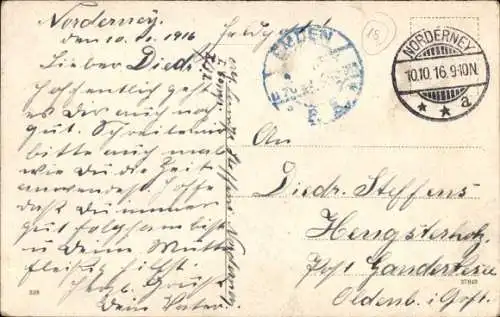 Norderney.
den 10.10.1916
Lieber Died.
Hoffentlich geht
es Dir auch noch
gut. Schreibe nur
bitte auch mal
wie Du die Zeit
anwendest. Hoffe
daß Du immer
gut folgsam bist
u Deine Mutter
fleißig hilfst.
Herzl. Gruß
Dein Vater.
Feldpost
15
EMDEN
NORDERNEY
10.10.16. 9-10N.
* * a
An
Diedr. Steffens
Hengsterholz
Post Ganderkesee
Oldenb. i Grßt.